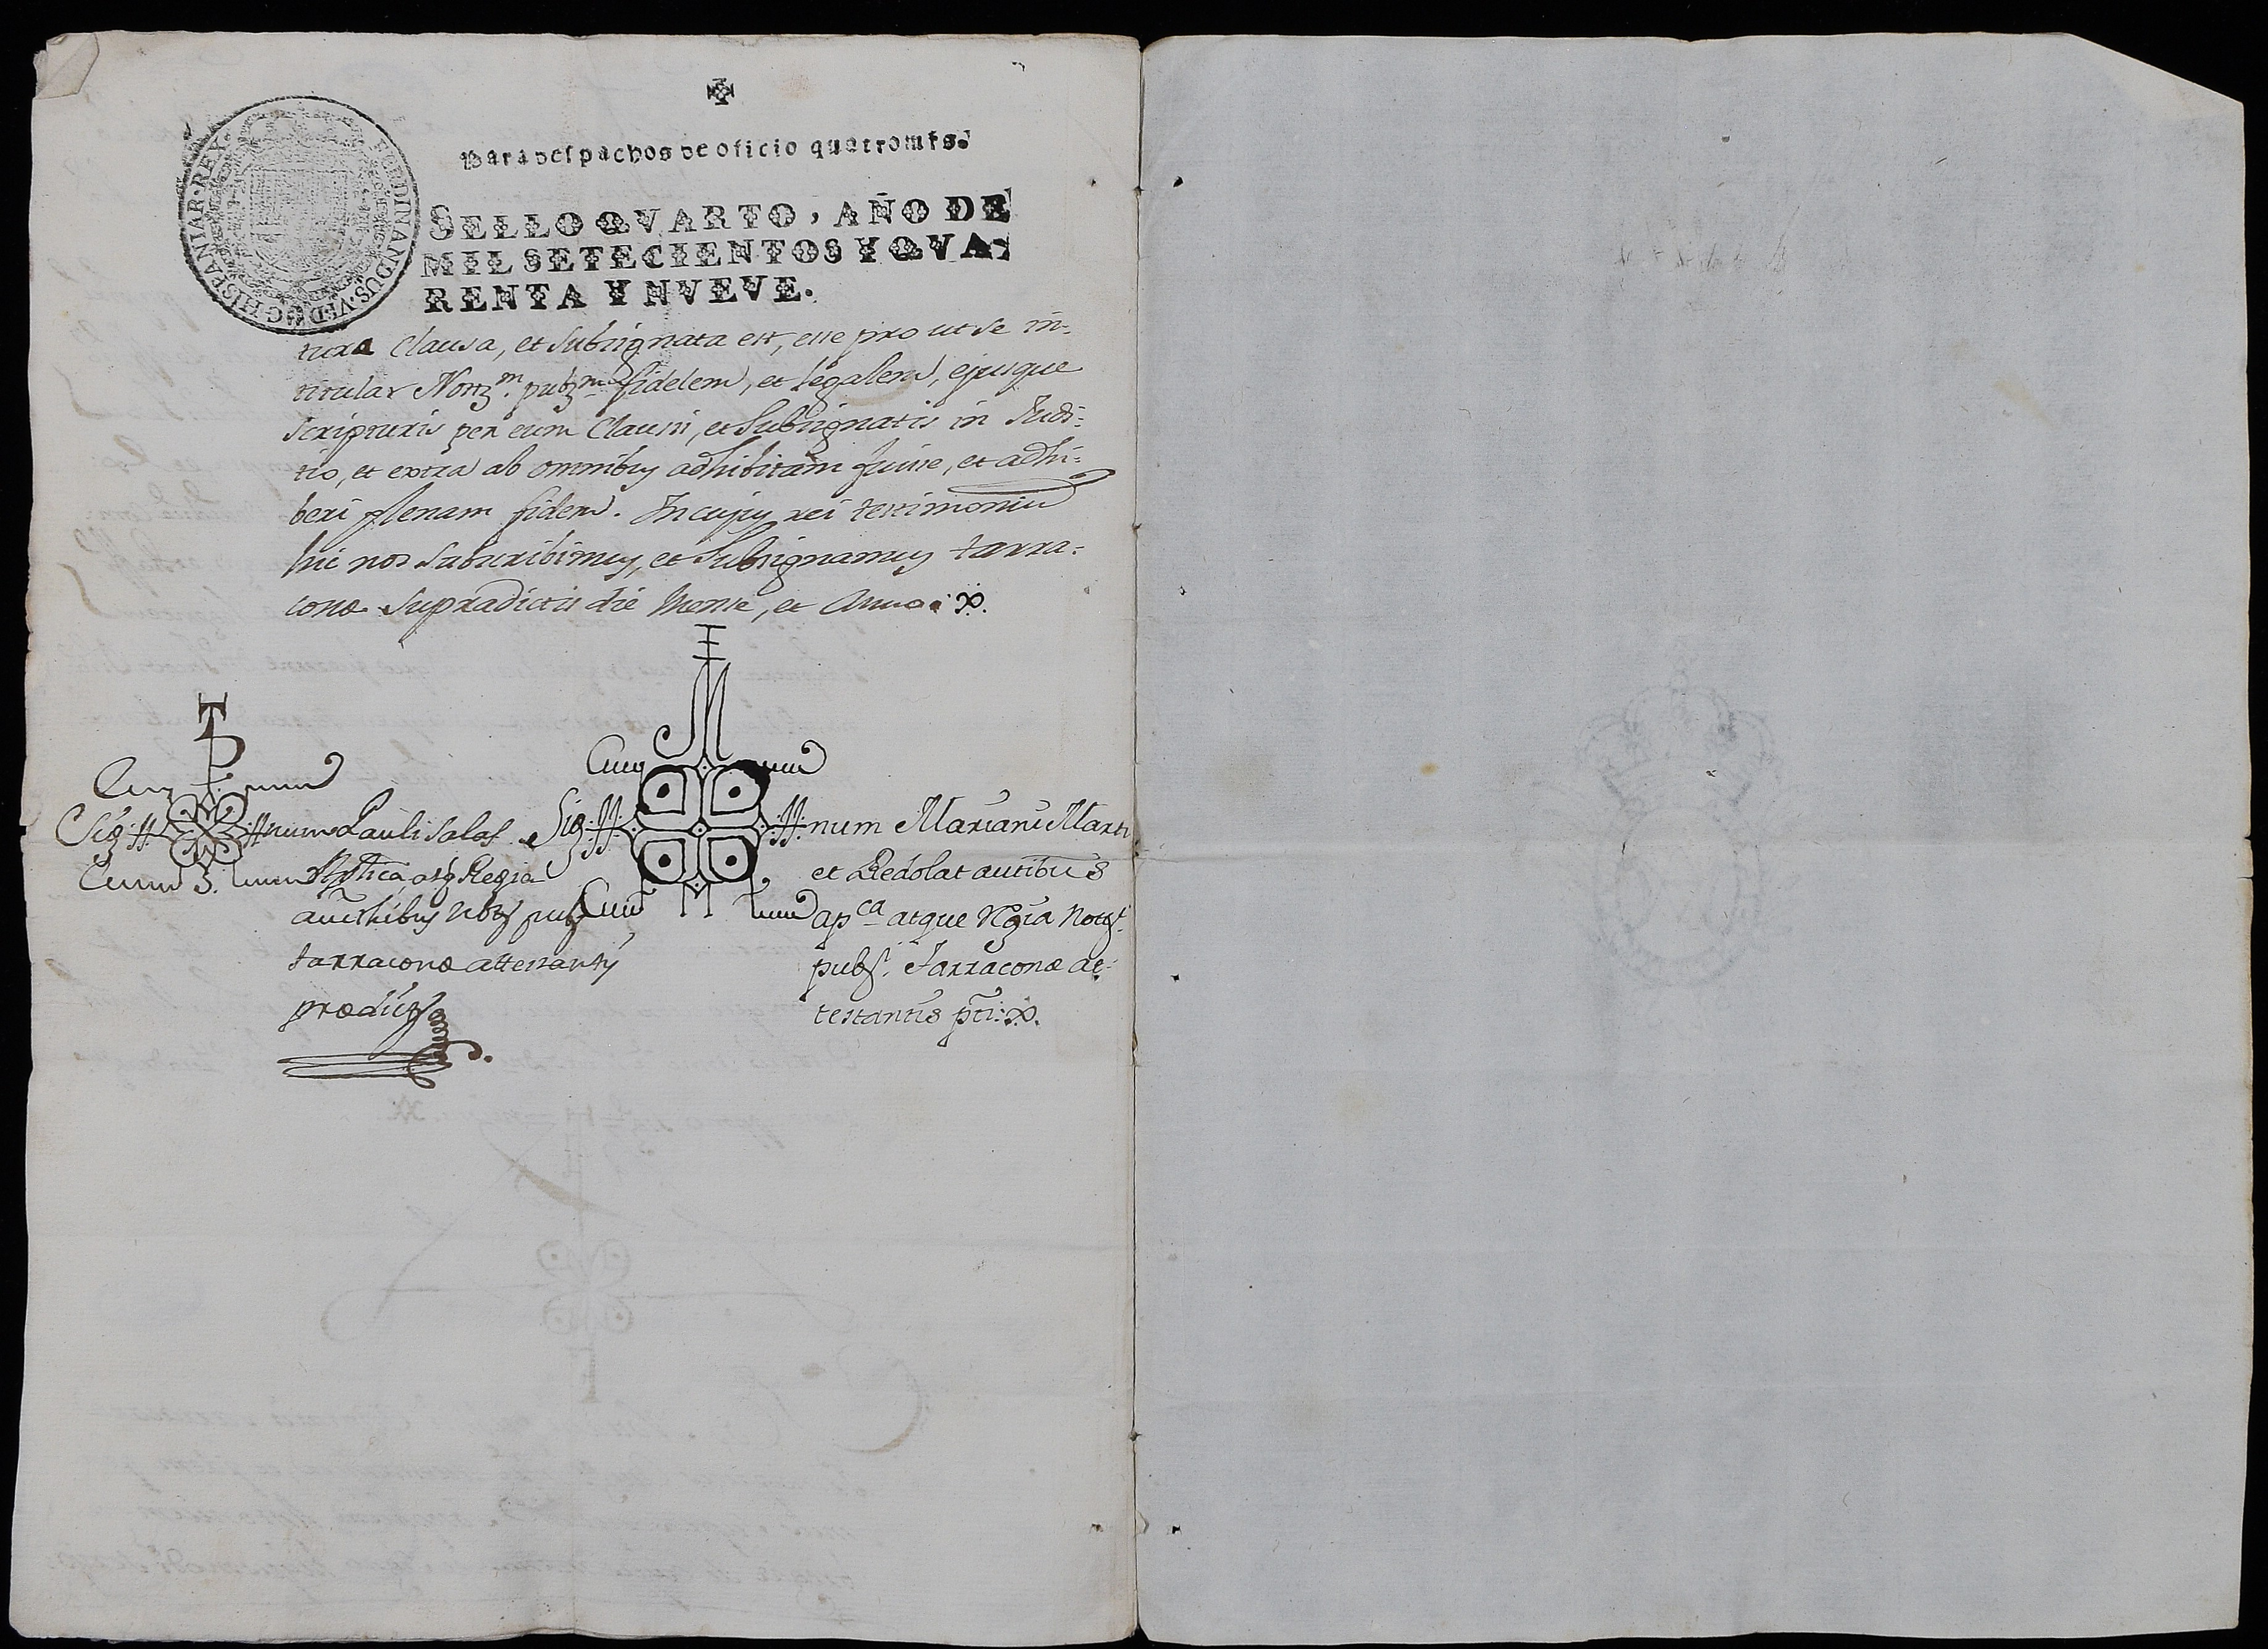 Para despachos de oficio quatro mrs.
SELLO QVARTO, AÑO DE
MIL SETECIENTOS Y QVA-
RENTA Y NVEVE.
FERDINANDUS·VI·D·G·HISPANIAR·REX·
tura Clausa, et Subsignata est, esse pro ut se in-
titular Nott.m pub.m fidelem, et legalem, ejusque
Scripturis per eum Clausis, et Subsignatis in Judi-
tio, et extra ab omnibus adhibitam fuisse, et adhi-
beri plenam fidem. In cujus rei testimoniũ
hic nos Subscribimus, et Subsignamus tarra-
conæ Supradictis die Mense, et Anno
Sig num Pauli Salas
Aplica, atq Regia
tarraconæ attestantis
prædictis
Sig num Mariani Marti
et Redolat autibus
ap.ca atque Rgia Nott.
pub. Tarraconæ at-
testantis pti: